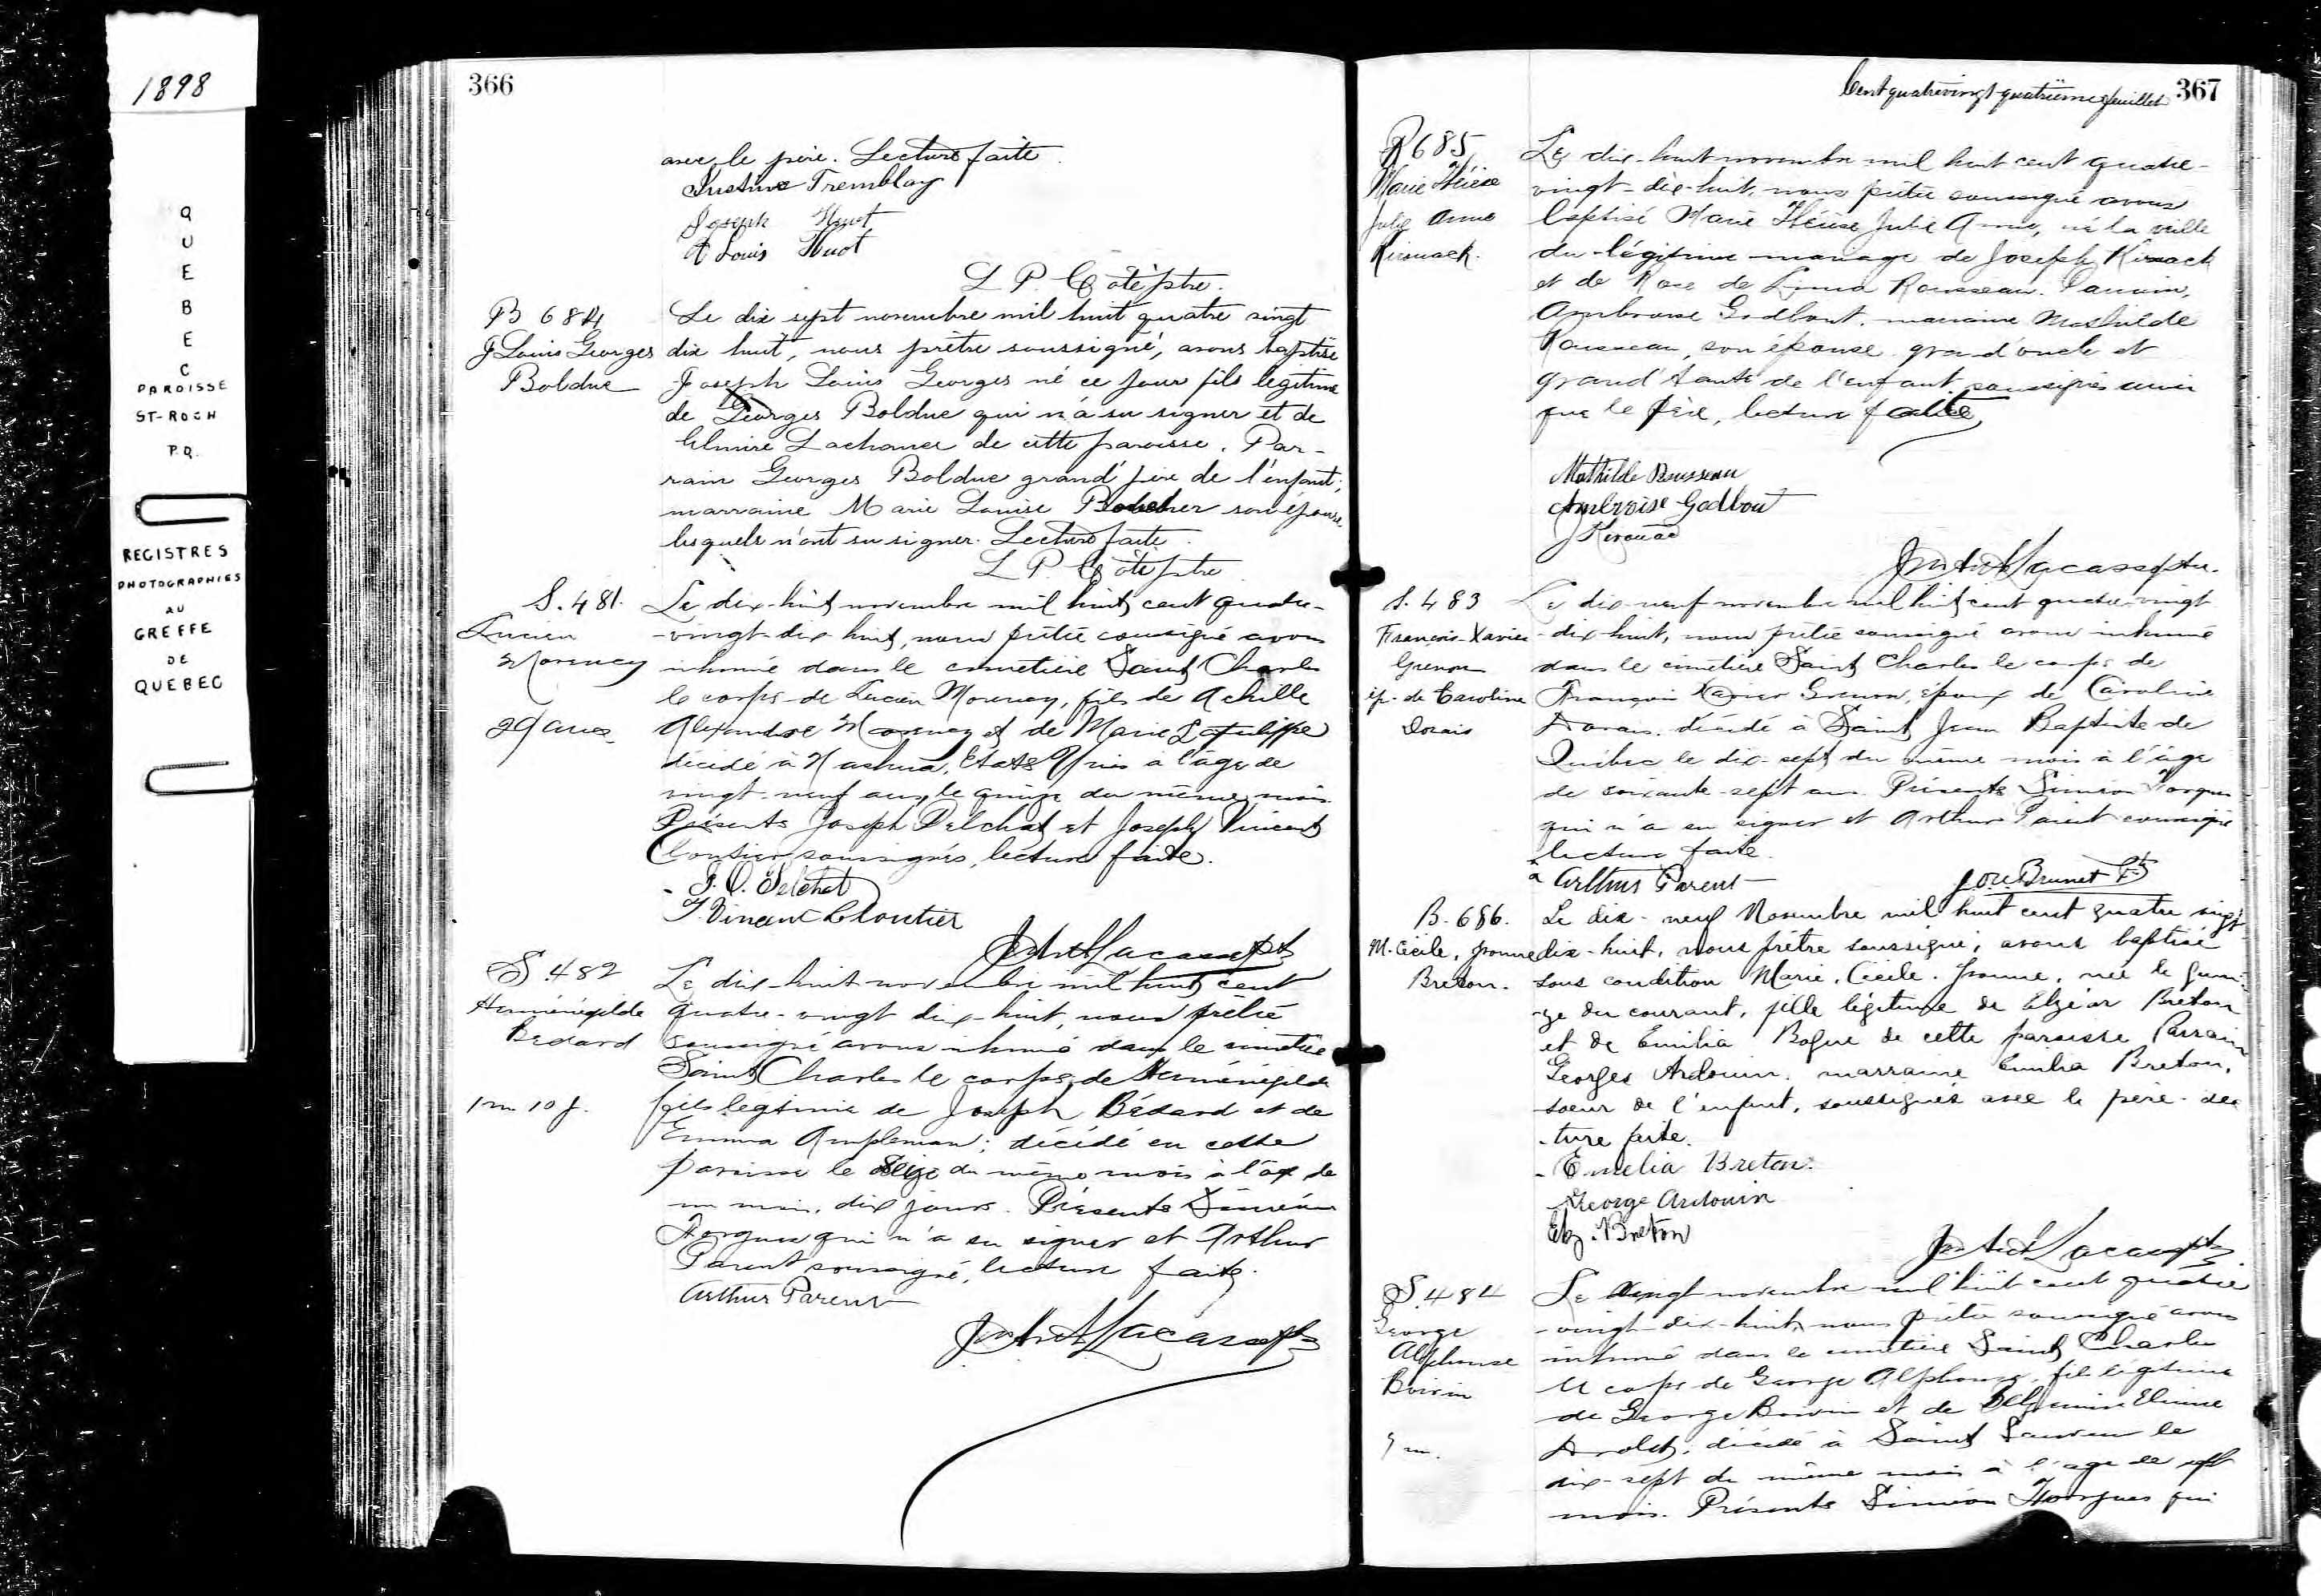 1898
QUEBEC
PAROISSE
ST-ROCH
P.Q.
REGISTRES
PHOTOGRAPHIES
AU
GREFFE
DE
QUEBEC
366
avec le père. Lecture faite.
Justine Tremblay
Joseph Huot
A Louis Huot
L P. Côté ptre.
B 684
J Louis Georges
Bolduc
Le dix sept novembre mil huit quatre vingt
dix huit, nous prêtre soussigné, avons baptisé
Joseph Louis Georges né ce jour fils légitime
de Georges Bolduc qui n'a su signer et de
Elmire Lachance de cette paroisse. Par-
rain Georges Bolduc grand'père de l'enfant;
marraine Marie Louise Boucher son épouse
lesquels n'ont su signer. Lecture faite.
L P. Côté ptre
S. 481.
Lucien
Morency
29 ans
Le dix-huit novembre mil huit cent quatre-
-vingt-dix-huit, nous prêtre soussigné avons
inhumé dans le cimetière Saint Charles
le corps de Lucien Morency, fils de Achille
Alexandre Morency et de Marie Latulippe
décédé à Nashua, Etats Unis à l'âge de
vingt-neuf ans, le quinze du même mois.
Présents Joseph Delchat et Joseph Vincent
Cloutier soussignés, lecture faite.
J. O. Delchat
J. Vincent Cloutier
Lacasse ptr
S. 482
Herménégilde
Bédard
1 m 10 j.
Le dix-huit novembre mil huit cent
quatre-vingt dix-huit, nous prêtre
soussigné avons inhumé dans le cimetière
Saint Charles le corps de Herménégilde
fils légitime de Joseph Bédard et de
Emma Ampleman; décédé en cette
paroisse le seize du même mois à l'âge de
un mois, dix jours. Présents Siméon
Forgues qui n'a su signer et Arthur
Parent soussigné, lecture faite.
Arthur Parent
Lacasse ptr
Cent quatrevingt quatrième feuillet 367
B 685
Marie Thérèse
Julie Anne
Kirouack.
Le dix-huit novembre mil huit cent quatre-
vingt-dix-huit, nous prêtre soussigné avons
baptisé Marie Thérèse Julie Anne, né la veille
du légitime mariage de Joseph Kirouack
et de Rose de Lima Rousseau. Parrain,
Ambroise Godbout, marraine Mathilde
Rousseau, son épouse grand'oncle et
grand'tante de l'enfant soussignés ainsi
que le père, lecture faite
Mathilde Rousseau
Ambroise Godbout
J Kirouac
Lacasse ptr.
S. 483
François-Xavier
Grenon
ép. de Caroline
Dorais
Le dix-neuf novembre mil huit cent quatre-vingt
-dix huit, nous prêtre soussigné avons inhumé
dans le cimetière Saint Charles le corps de
François Xavier Grenon, époux de Caroline
Dorais. décédé à Saint Jean Baptiste de
Québec le dix-sept du même mois à l'âge
de soixante-sept ans. Présents Siméon Forgues
qui n'a su signer et Arthur Parent soussigné
lecture faite.
Arthur Parent
Brunet
B. 686.
M. Cécile, Yvonne
Breton.
Le dix-neuf Novembre mil huit cent quatre vingt-
dix-huit, nous prêtre soussigné, avons baptisé
sous condition Marie, Cécile. Yvonne, née le quin-
-ze du courant, fille légitime de Elzéar Breton
et de Emilia Bogue de cette paroisse Parrain
Georges Ardouin. marraine Emilia Breton,
soeur de l'enfant, soussignés avec le père. lec
-ture faite.
Emelia Breton.
George Ardouin
Elz. Breton
Lacasse ptr
S. 484
George
Alphonse
Boivin
7 m.
Le vingt novembre mil huit cent quatre
-vingt-dix-huit, nous prêtre soussigné avons
inhumé dans le cimetière Saint Charles
le corps de George Alphonse, fils légitime
de George Boivin et de Elmire
Drolet, décédé à Saint Sauveur le
dix-sept du même mois à l'âge de sept
mois. Présents Siméon Forgues qui